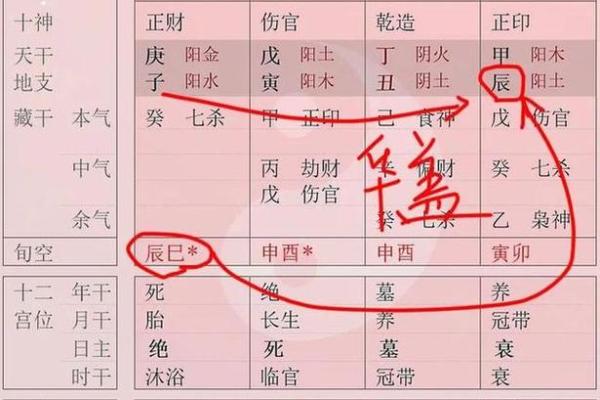 十神 正财 伤官 乾造 正印
天干 庚 阳金 戊 阳土 丁 阴火 甲 阳木
地支 子 阳水 寅 阳木 丑 阴土 辰 阳土
藏干 本气 癸 七杀 甲 正印 己 食神 戊 伤官
中气 丙 劫财 辛 偏财 癸 七杀
戊 伤官
华盖
余气 癸 七杀 乙 枭神
旬空 辰巳* 申酉* 申酉 寅卯
十二 年干 死 绝 墓 养
宫位 月干 胎 长生 养 冠带
日主 绝 死 墓 衰
时干 沐浴 临官 冠带 衰